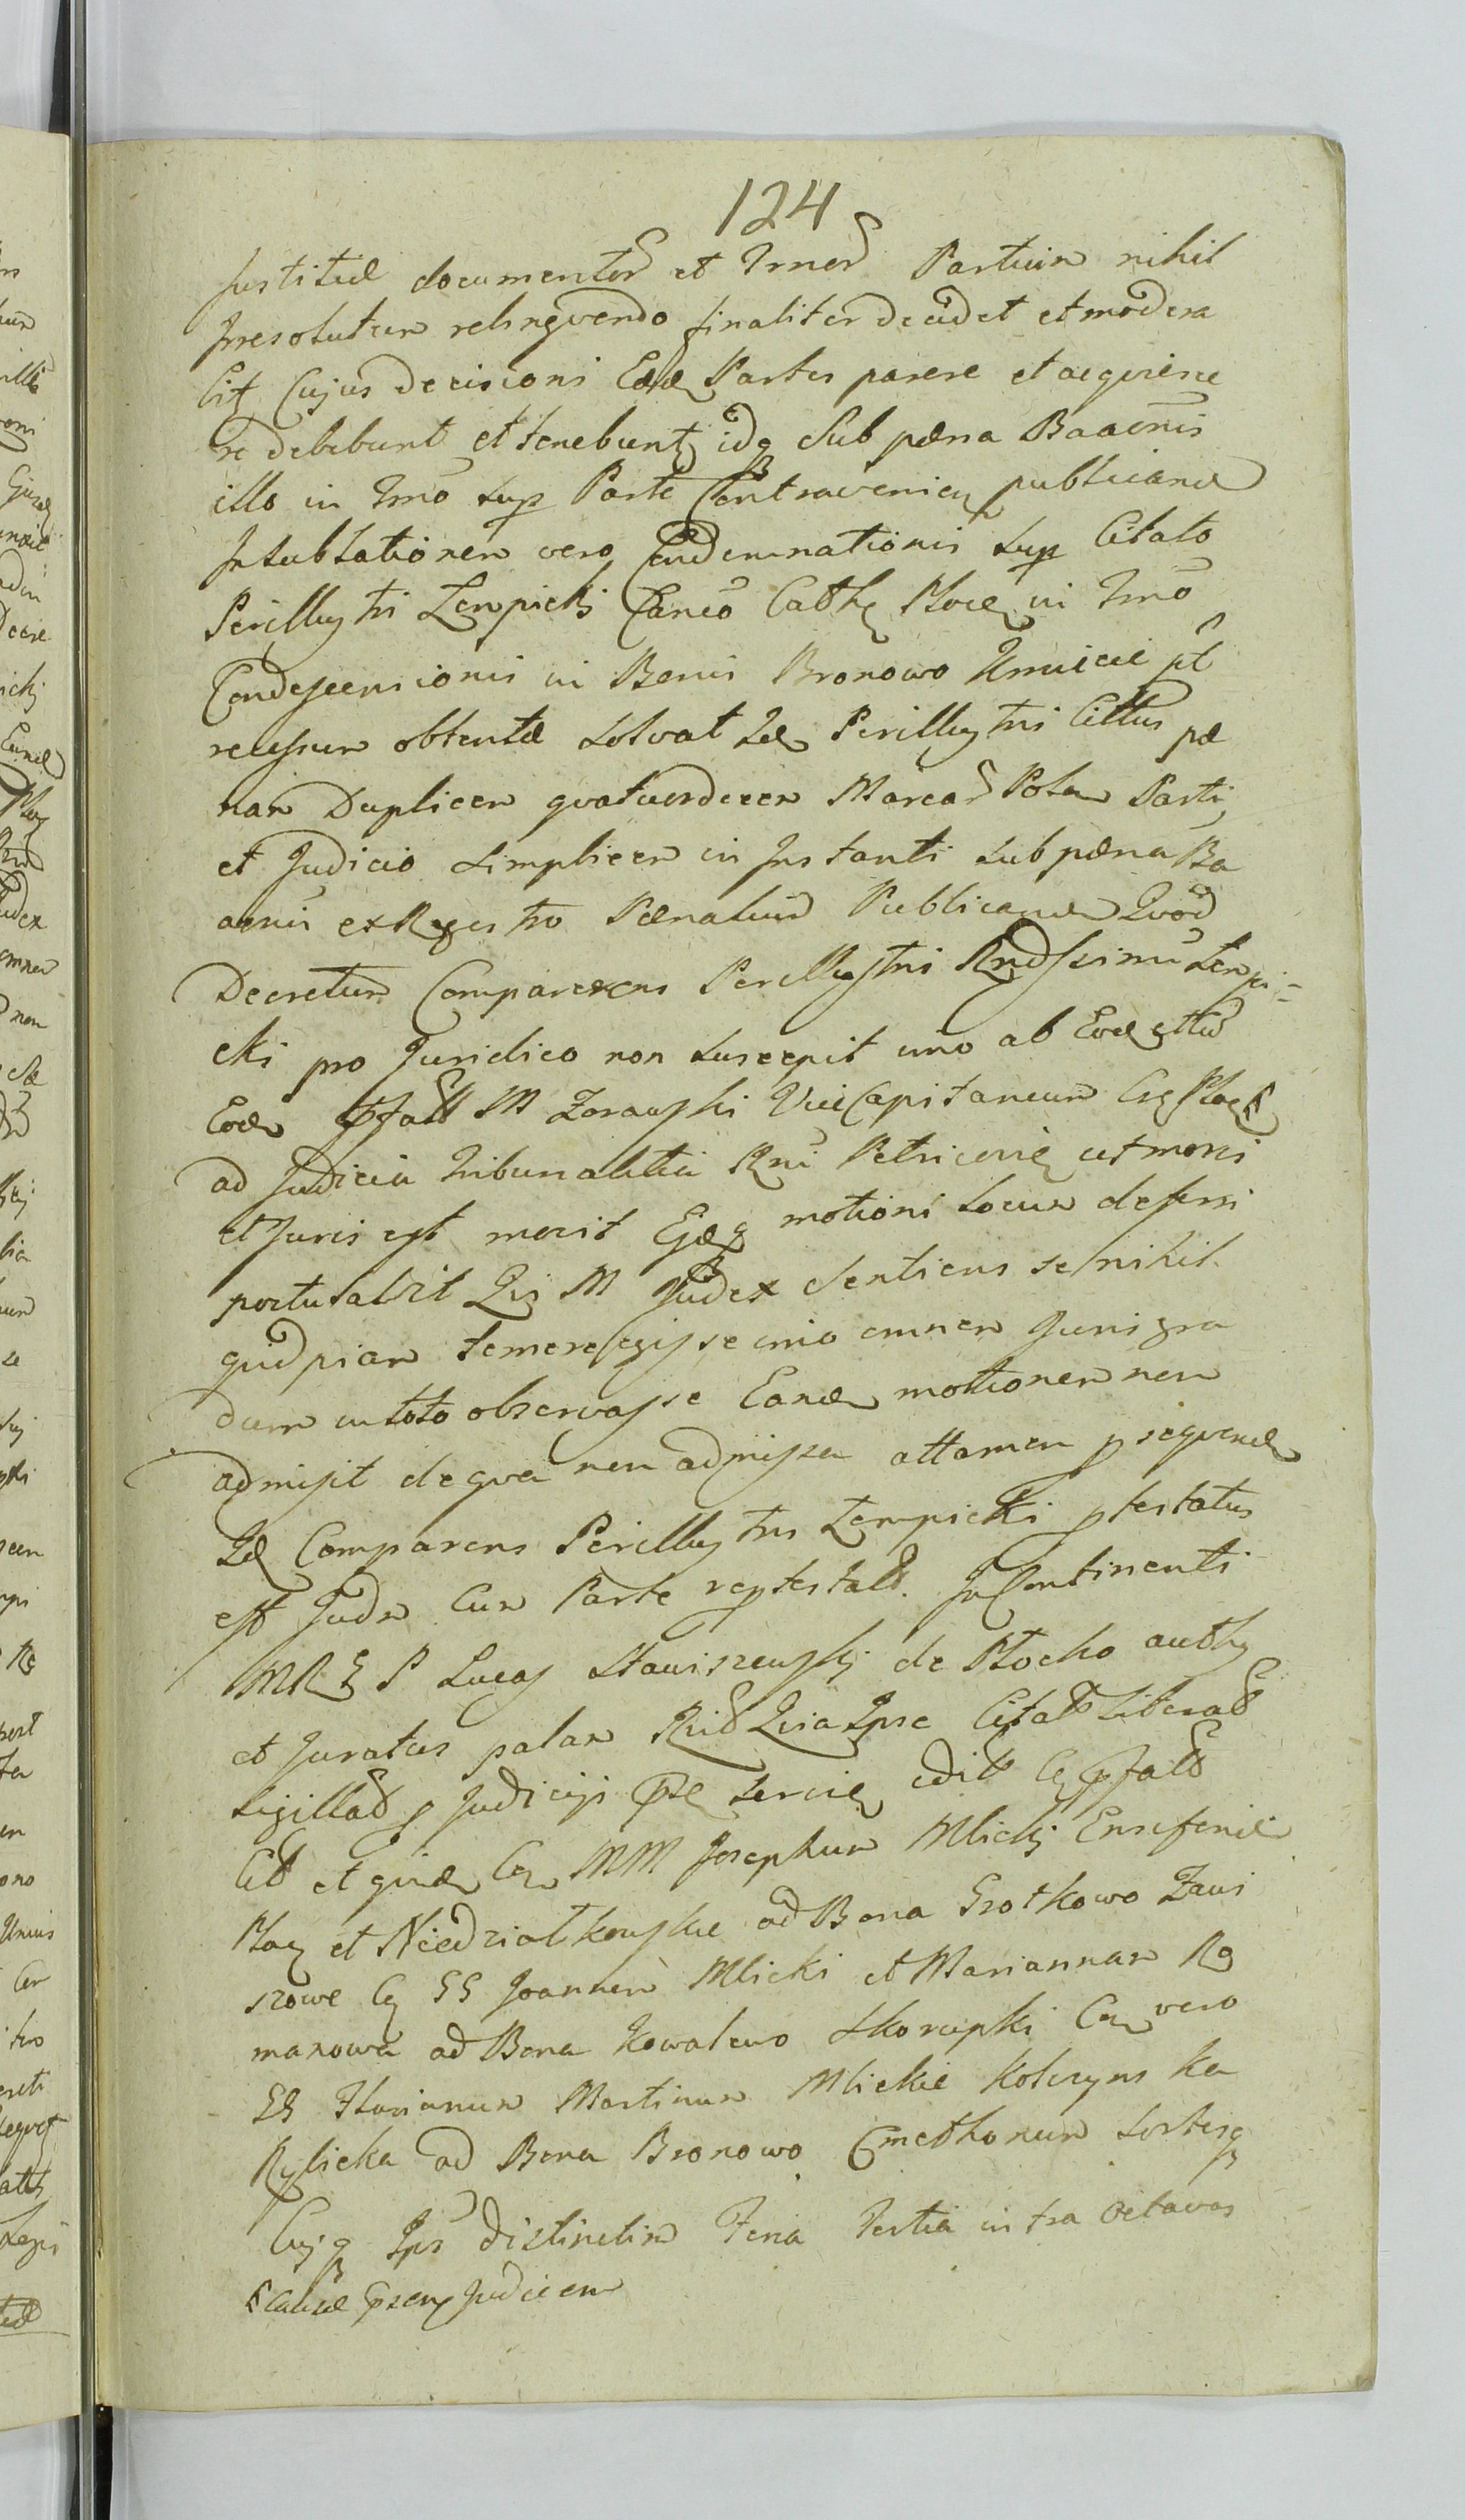 124
Justitiæ documentor et Trmor Partium nihil
Irresolutum relinqvendo finaliter decidet et modera
bit Cujus decisioni Eædē Partes parere et acqviesce
re debebunt et tenebunt idq Sub pæna Baaōnis
illo in Trmō sup Parte Contravenien publicanđ
In sublationem vero Condemnationis sup Citato
Perillustri Lempicki Canco Cathz Ploceñ in Trmō
Condescensionis in Bonis Bronowo Kmiecie pt
recessum obtentæ solvat Idē Perillustris Cittus pæ
nam Duplicem qvatuordecem Marcar Polon Parti
et Judicio simplicem in Instanti sub pæna Ba
aonis ex Regestro Pænalium Publicanđ Qvod
Decretum Comparens Perillustris Rndssimus Lempi=
cki pro Juridico non suscepit imo ab Eodē
Eodē M Zorawski ViceCapitaneum
ad Judicia Tribunalitia Rni Petricoviē ut moris
et Juris est movit Ejqe motioni locum deferri
postulavit Qvi M Judex Sentiens se nihil
qvidpiam temere egisse imo omnem Juris gra
dum in toto observasse Eandē motionem non
admisit de qva non admissa attamen pseqvendē
Idē Comparens Perillustris Lempicki ptestatus
est Judm Cum Parte reptestatt. In Continenti
MRG P Lucas Staniszewski de Plocko auths
et Juratus palam Qvia Ipse Litterar
sigillat p Judicij edit
Cit et MM Josephum Mlicki Ensiferiē
et Niedziałkowskie ad Bona Srotkowo Zawi
szowe SS Joannem Mlicki et Mariannam Ro
manowa ad Bona Kowalewo Skorupki vero
Florianum Martinum Mlickie Kolczyns ka
Rylicka ad Bona Bronowo Cmethonum sortesq
Cujq Ips distinctim Feria Tertia intra Octavas
Judicem